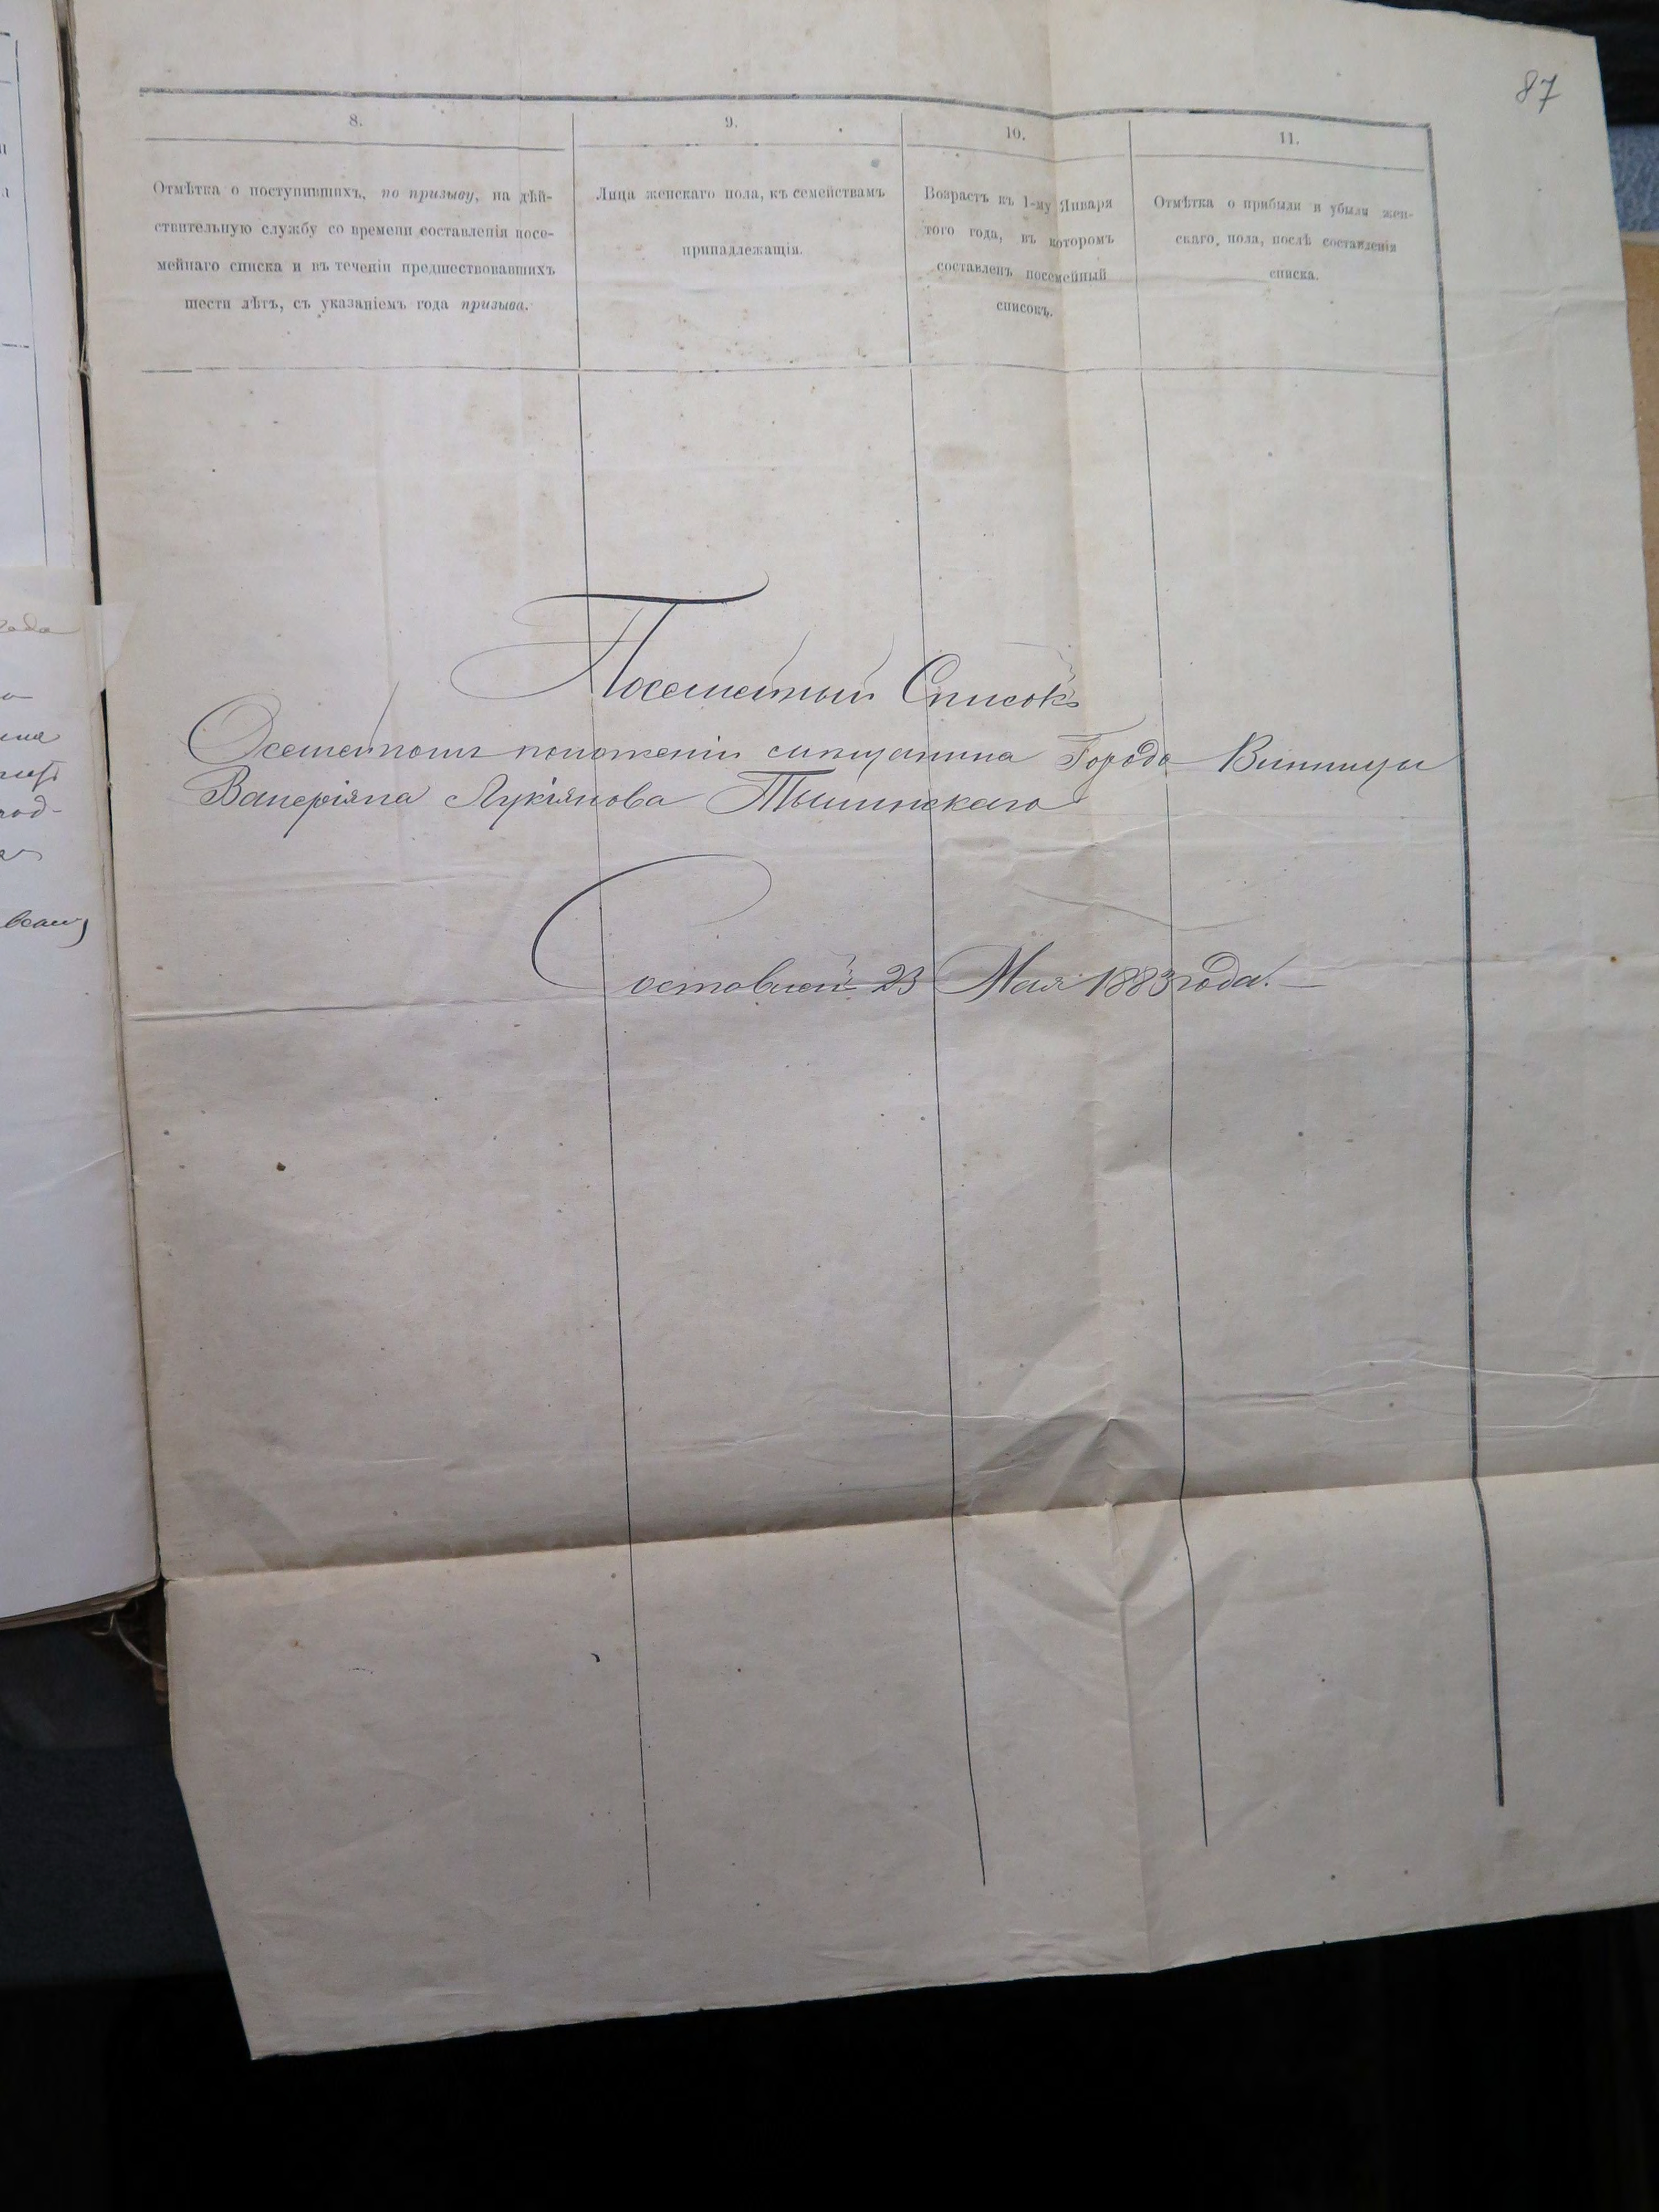 87
8.
Отмѣтка о поступившихъ, по призыву, на дѣй-
ствительную службу со времени составленія посе-
мейнаго списка и въ теченіи предшествовавшихъ
шести лѣтъ, съ указаніемъ года призыва.
9.
Лица женскаго пола, къ семействамъ
принадлежащія.
10.
Возрастъ къ 1-му Января
того года, въ которомъ
составленъ посемейный
списокъ.
11.
Отмѣтка о прибыли и убыли жен-
скаго, пола, послѣ составленія
списка.
Посемейный Списокъ
Осемейномъ положеніи мѣщанина Города Винницы
Валеріяна Лукіянова
Составленъ 23 Мая 1883 года.